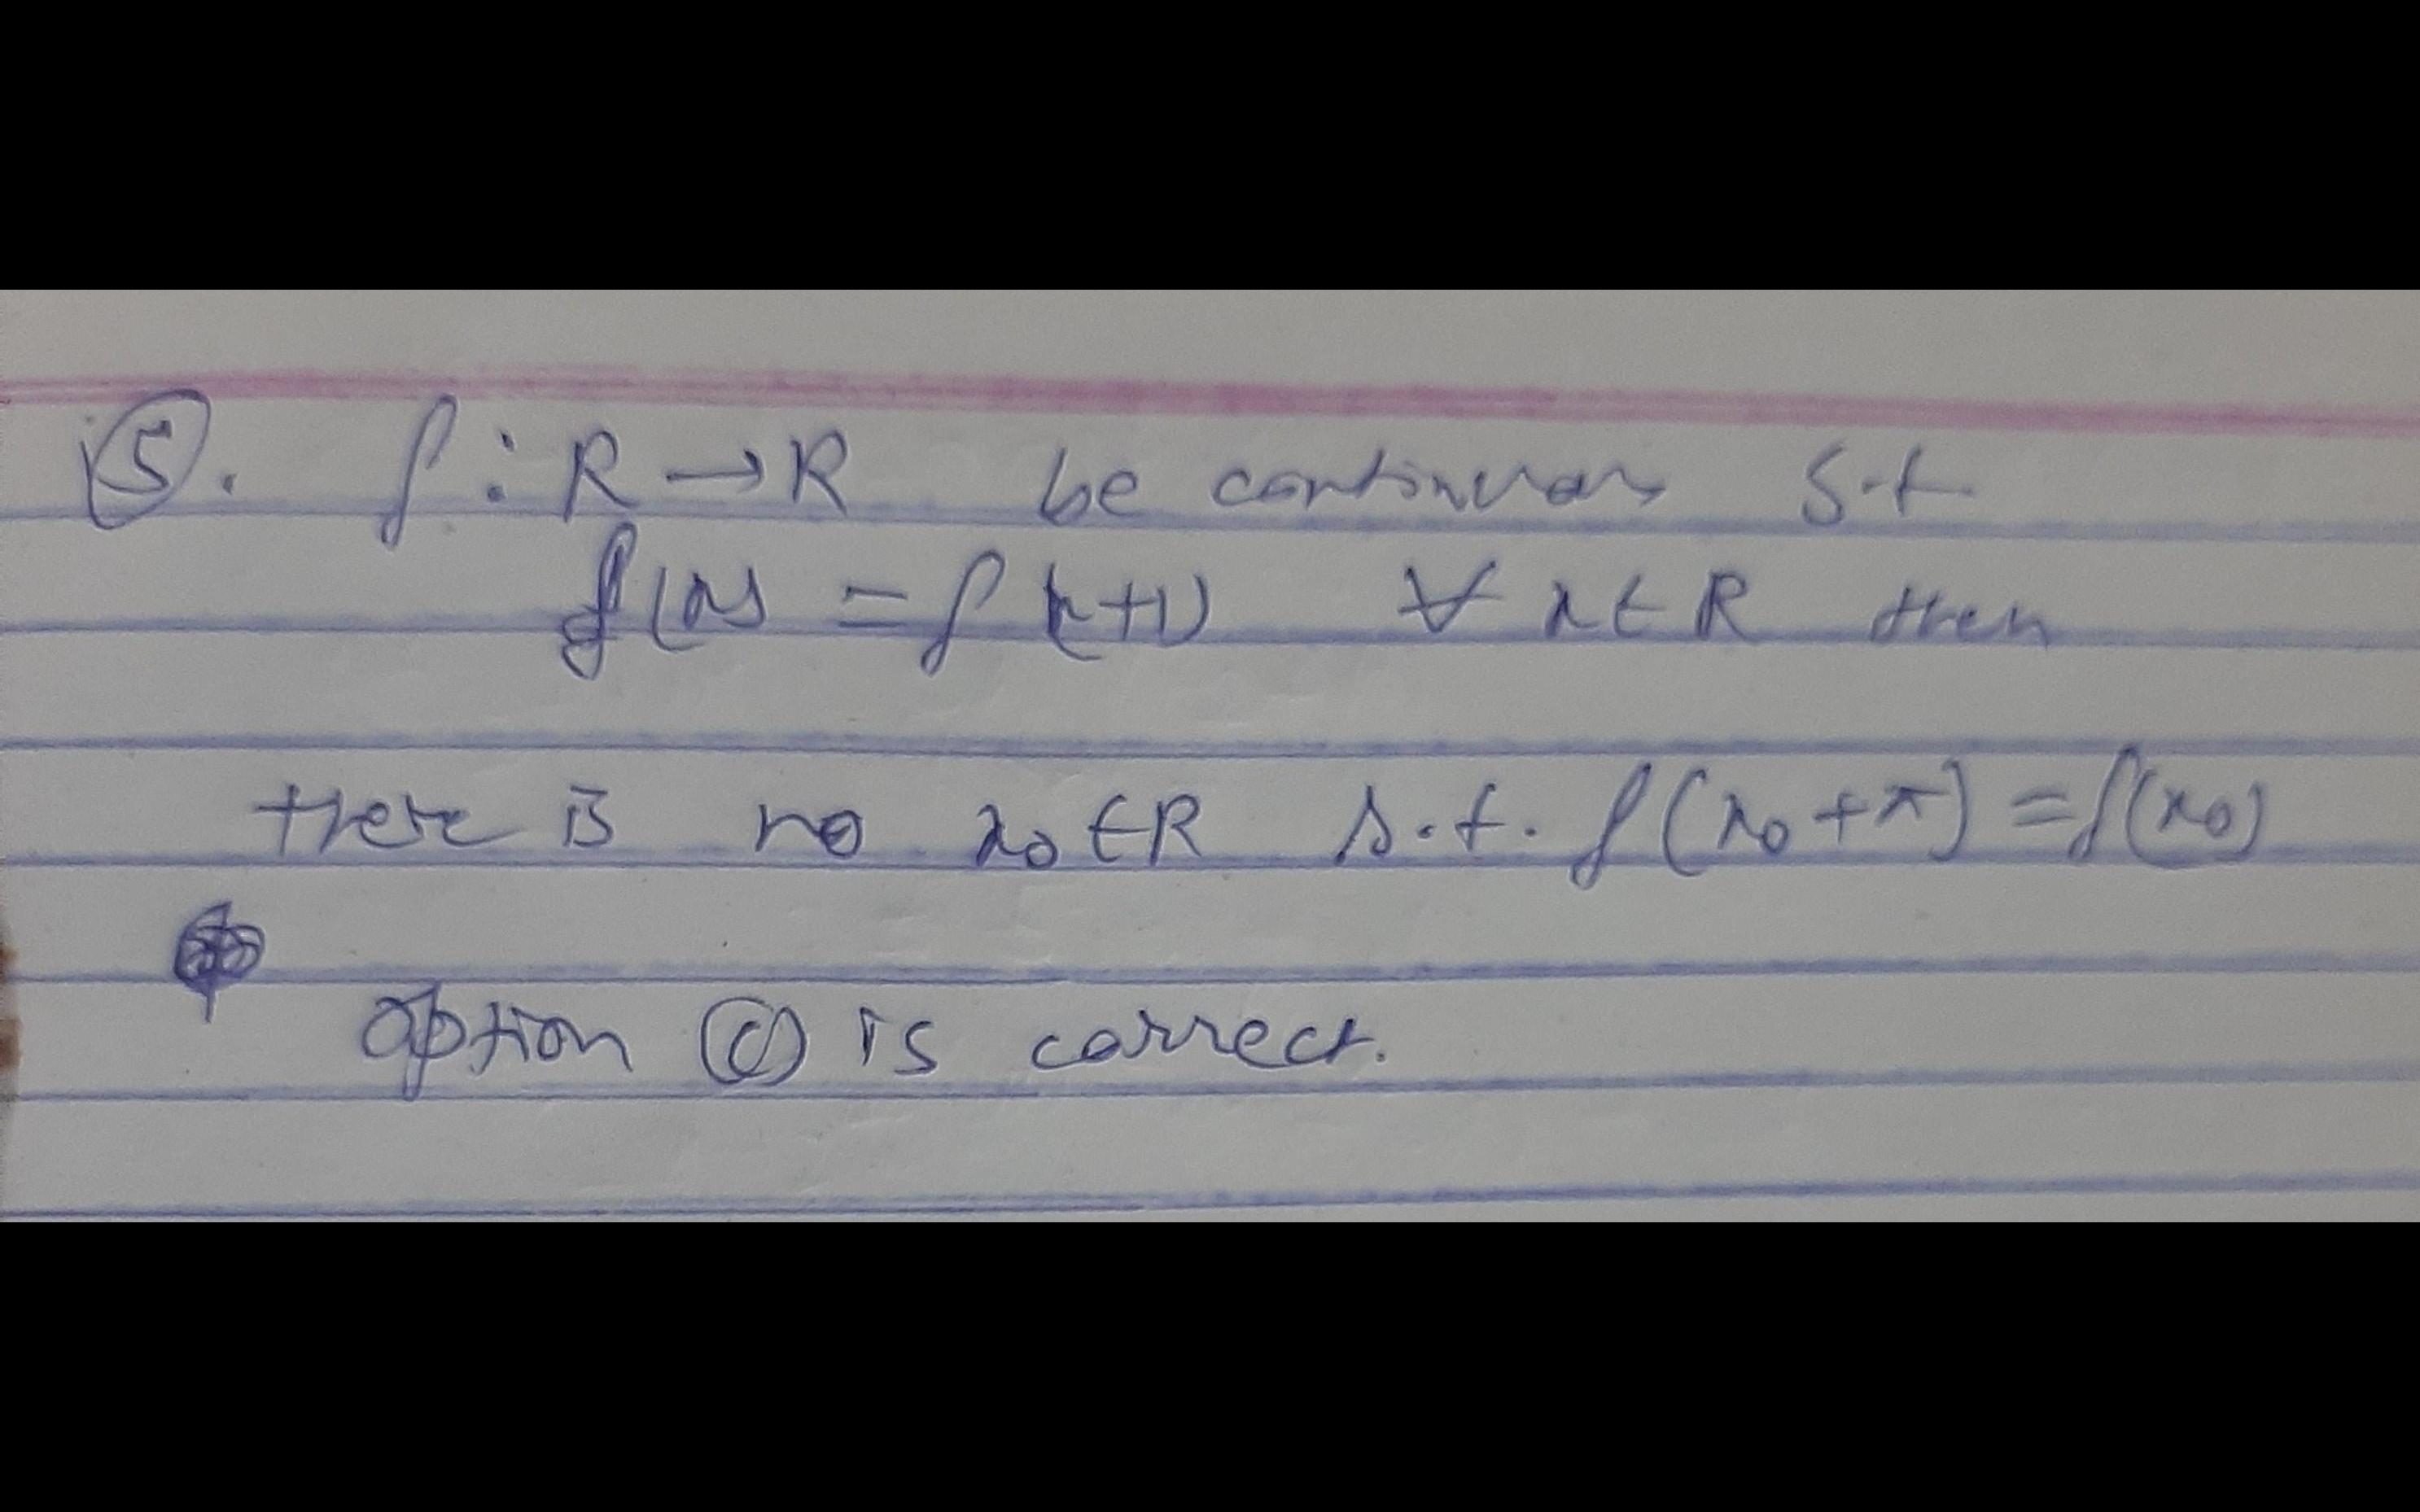 ⑤. f : R → R be continuous s.t
f(x) = f(x+1) ∀ x ∈ R then
there is no x₀ ∈ R s.t. f(x₀+π) = f(x₀)
option (c) is correct.